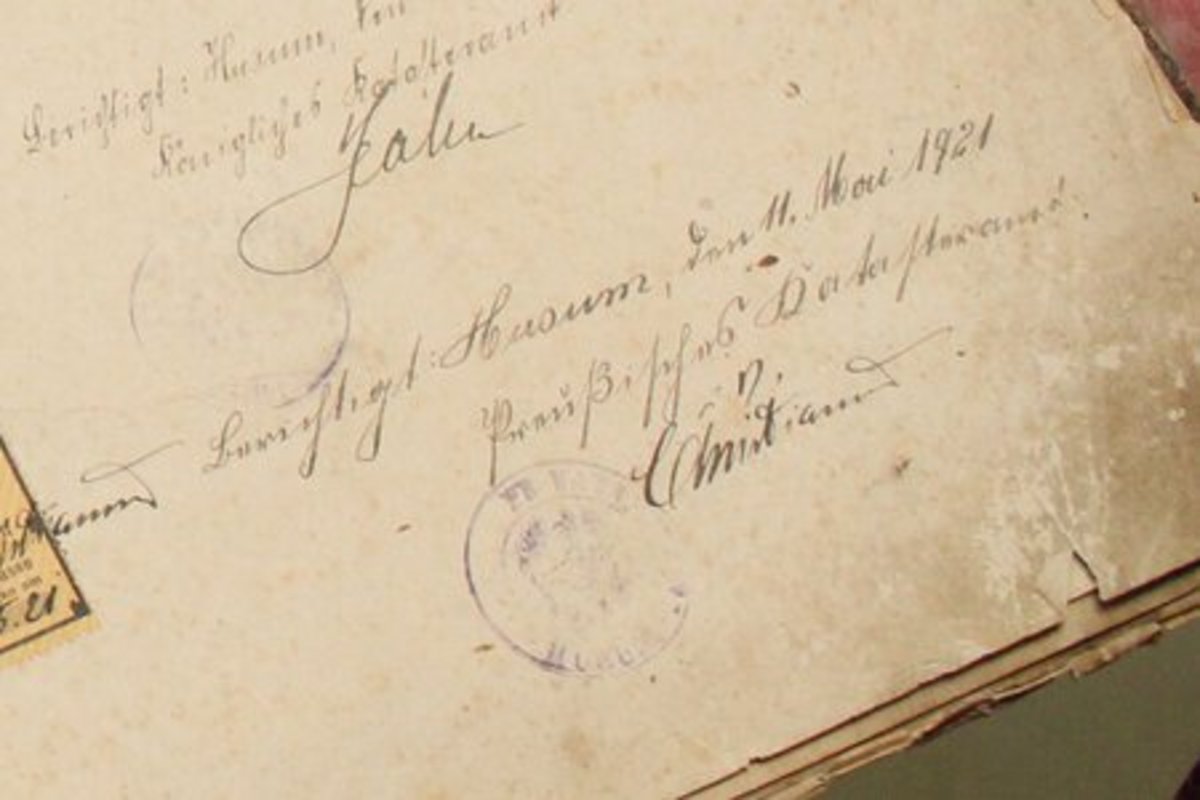 Berichtigt: Husum, den
Königliches Katasteramt
Jahn
Berichtigt: Husum, den 11. Mai 1921
Preußisches Katasteramt.
V.
Christiansen
5.21